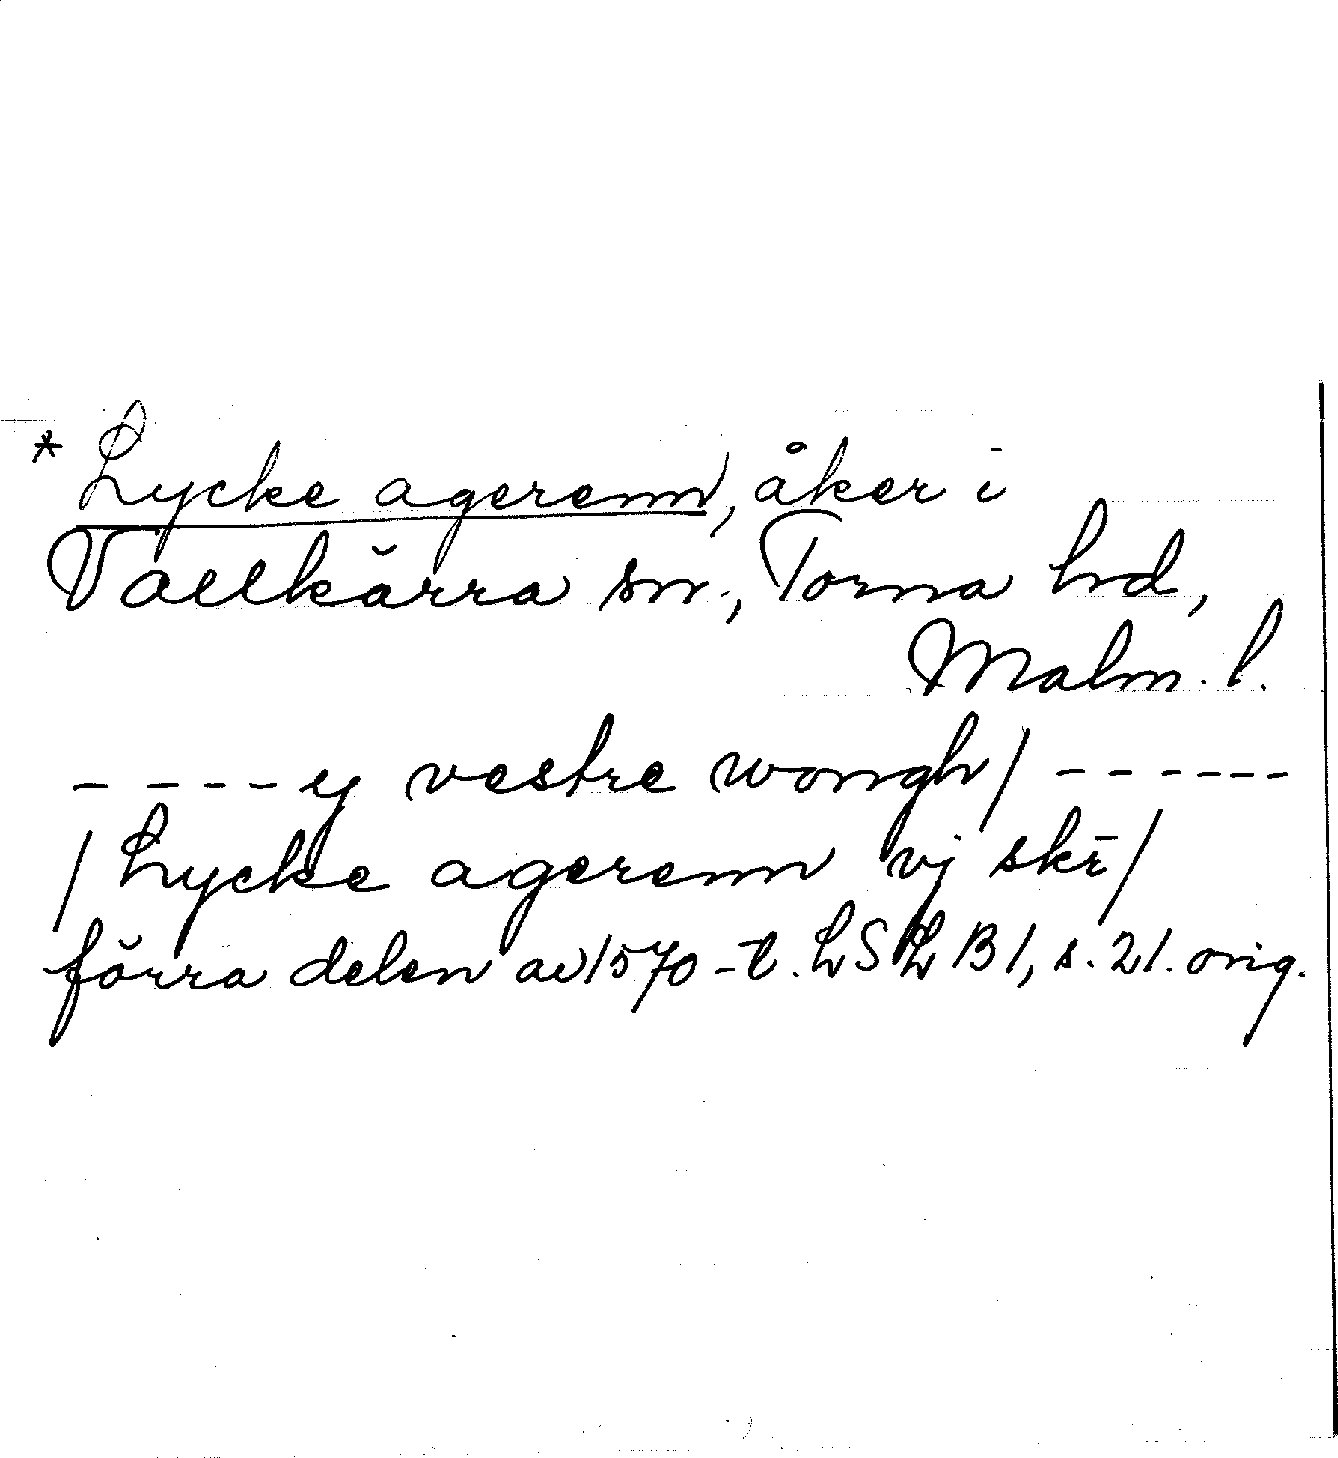 * Lycke agerenn, åker i
Vallkärra sn., Torna hrd,
Malm. l.
----- y vestre wongh / ------
/ Lycke agerenn vj skr̄ /
förra delen av 1570-t. LSLB1, s. 21. orig.